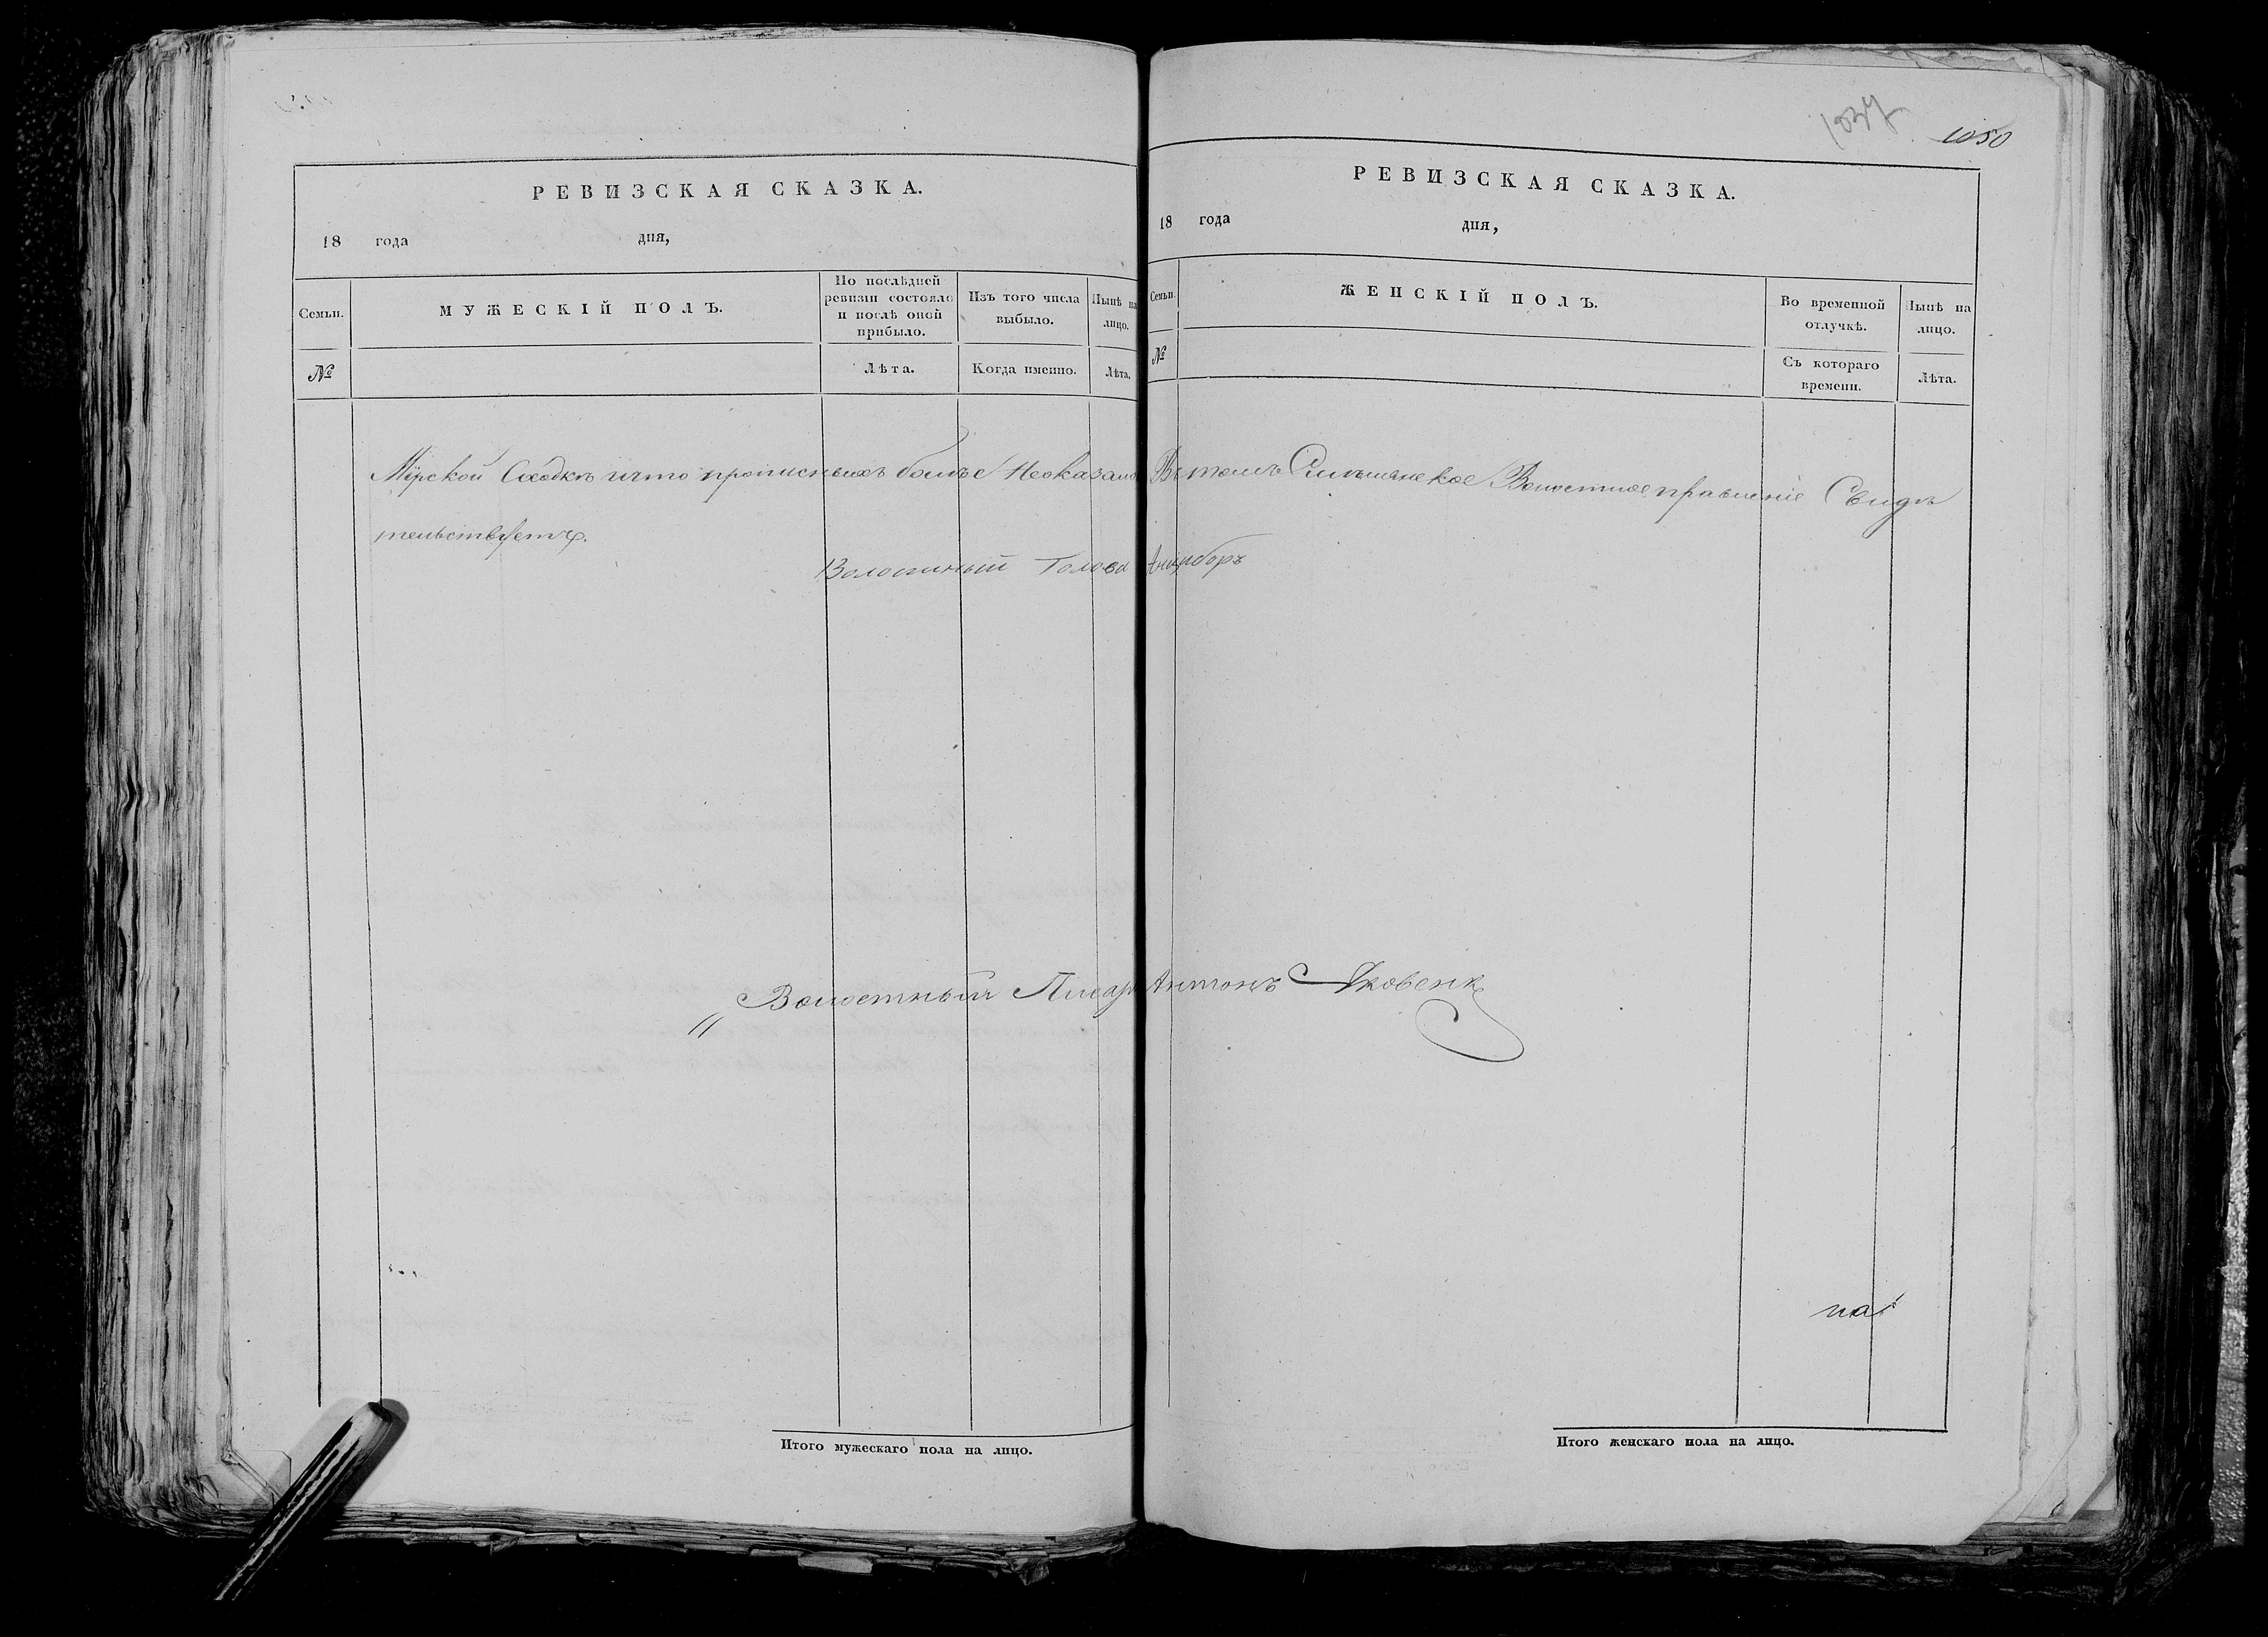 1037
1050
РЕВИЗСКАЯ СКАЗКА.
18 года дня,
Семьи.
МУЖЕСКІЙ ПОЛЪ.
По послѣдней ревизіи состояло и послѣ оной прибыло.
Изъ того числа выбыло.
Нынѣ на лицо.
№
Лѣта.
Когда именно.
Лѣта.
РЕВИЗСКАЯ СКАЗКА.
18 года дня,
Семьи.
ЖЕНСКІЙ ПОЛЪ.
Во временной отлучкѣ.
Нынѣ на лицо.
№
Съ котораго времени.
Лѣта.
Мірской Сходкѣ что прописныхъ болѣе Неоказало Въ томъ Волостное правленіе Свидѣ
тельствуетъ.
Волосный Голова Анцыборъ
Волостный Писарь Антонъ Яковенко
Итого мужескаго пола на лицо.
Итого женскаго пола на лицо.